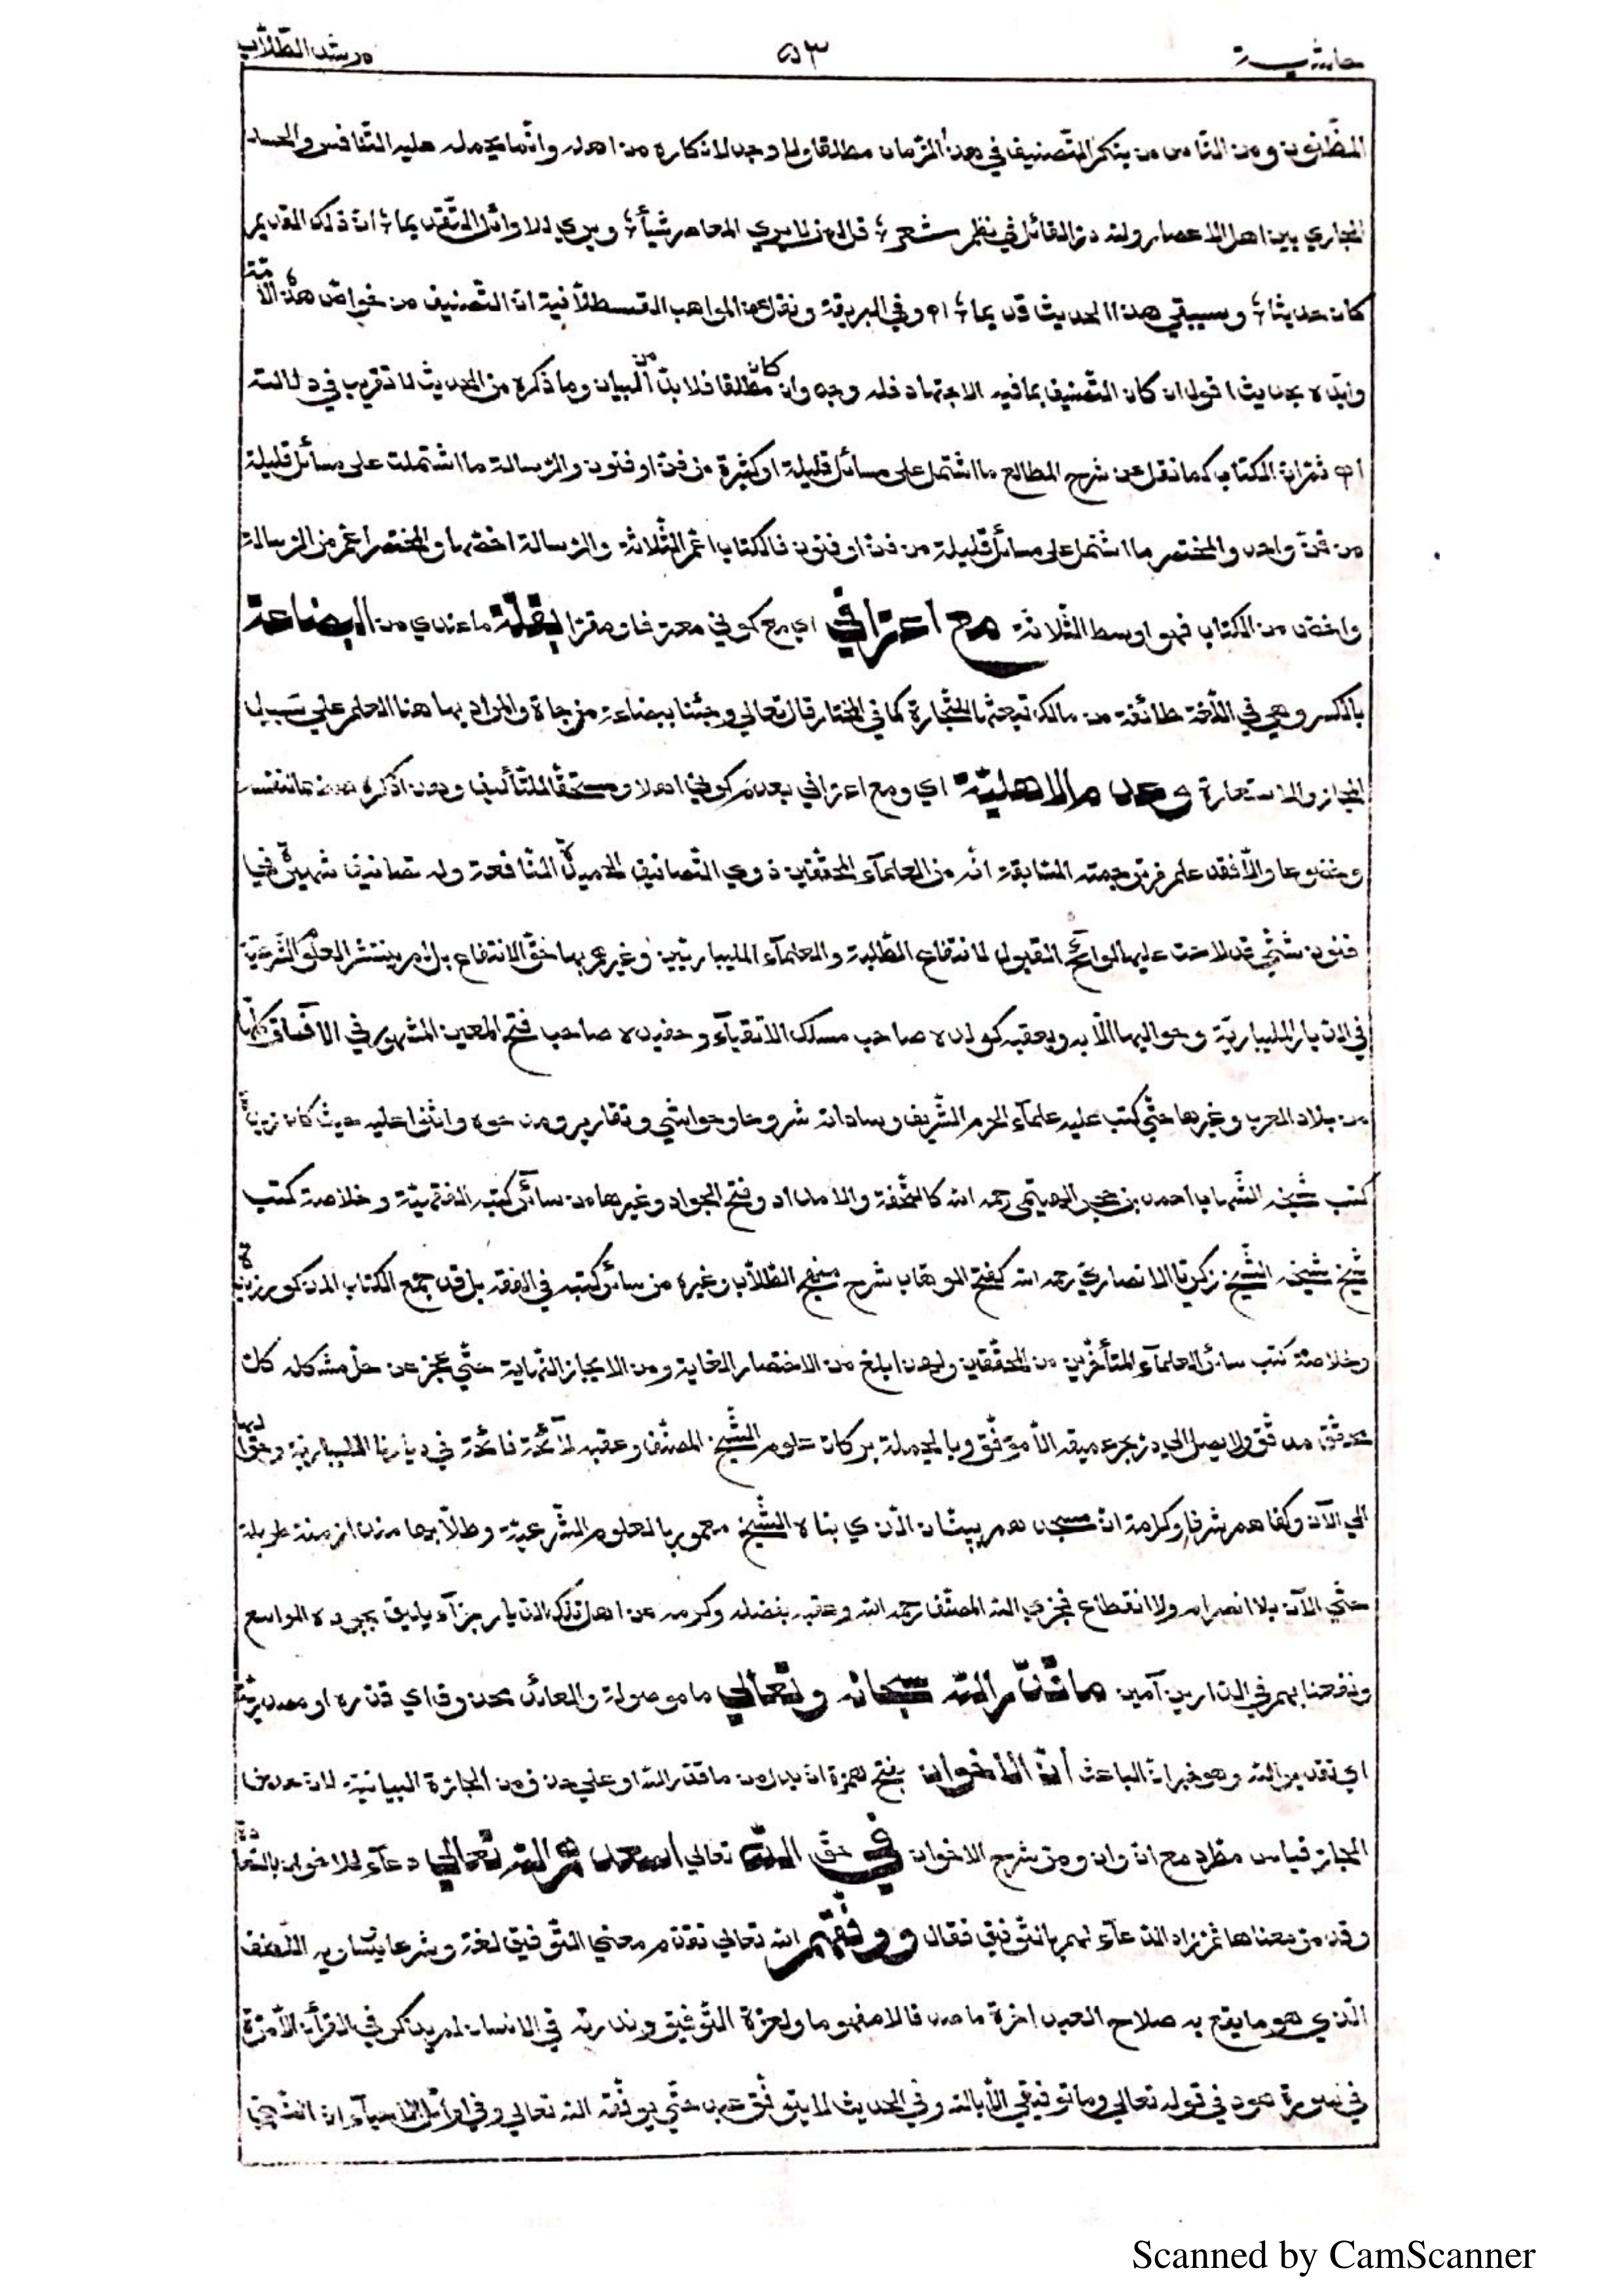 حاشية ٥٣ مرشد الطّلّاب
المظنون ومن النّاس من ينكر التّصنيف في هذا الزّمان مطلقا ولا وجه لانكاره من اهله وانّما يحمله عليه التّنافس والحسد
الجاري بين اهل الاعصار ولله درّ القائل في نظم شعر ؛ قل لمن لا يري المعاصر شيأ ؛ ويري للاوائل التّقديما ؛ انّ ذلك القديم
كان حديثا ؛ وسيبقي هذا الحديث قديما ؛ اه وفي البريقة ونقل عن المواهب القسطلّانية انّ التّصنيف من خواصّ هذه الامّة
وايّده بحديث اقول ان كان التّصنيف بما فيه الاجتهاد فله وجه وان كان مطلقا فلا بدّ من البيان وما ذكره من الحديث لا تقريب في دلالته
اه ثمّ انّ الكتاب كما نقل عن شرح المطالع ما اشتمل على مسائل قليلة او كثيرة من فنّ او فنون والرّسالة ما اشتملت على مسائل قليلة
من فنّ واحد والمختصر ما اشتمل على مسائل قليلة من فنّ او فنون فالكتاب اعمّ الثّلاثة والرّسالة اخصّها والمختصر اعمّ من الرّسالة
واخصّ من الكتاب فهو اوسط الثّلاثة مع اعترافي اي مع كوني معترفا ومقرّا بقلّة ما عندي من البضاعة
بالكسر وهي في اللّغة طائفة من مالك تبعثها للتّجارة كما في المختار قال تعالي وجئنا ببضاعة مزجاة والمراد بها هنا العلم علي سبيل
المجاز والاستعارة وعدم الاهليّة اي ومع اعترافي بعدم كوني اهلا ومستحقّا للتّأليف وهذا ذكره هضما لنفسه
وخضوعا والّا فقد علم في ترجمته السّابقة انّه من العلمآء المحقّقين ذوي التّصانيف الحميدة النّافعة وله تصانيف شهيرة في
فنون شتّي قد لاحت عليها لوائح القبول لانتفاع الطّلبة والعلمآء المليباريّين وغيرهم بها حقّ الانتفاع بل لم ينتشر العلوم الشّرعيّة
في الدّيار المليباريّة وحواليها الّا به وبعقبه كولده صاحب مسلك الاتقيآء وحفيده صاحب فتح المعين المشهور في الآفاق كلّها
من بلاد العرب وغيرها حتّي كتب عليه علمآء الحرم الشّريف وساداته شروحا وحواشي وتقارير ومدحوه واثنوا عليه حيث كان زبدة
كتب شيخه الشّهاب احمد بن حجر الهيتمي رحمه الله كالتّحفة والامداد وفتح الجواد وغيرها من سائر كتبه الفقهيّة وخلاصة كتب
شيخ شيخه الشّيخ زكريّا الانصاريّ رحمه الله كفتح الوهّاب شرح منهج الطّلّاب وغيره من سائر كتبه في الفقه بل قد جمع الكتاب المذكور زبدة
وخلاصة كتب سائر العلمآء المتأخّرين من المحقّقين ولهذا بلغ من الاختصار الغاية ومن الايجاز النّهاية حتّي عجز عن حلّ مشكله كلّ
محقّق مدقّق ولا يصل الي درّ بحر عميقه الّا موفّق وبالجملة بركات علوم الشّيخ المصنّف وعقبه لآئحة فائحة في ديارنا المليباريّة وحواليها
الي الآن وكفاهم شرفا وكرامة انّ مسجدهم بپنّان الّذي بناه الشّيخ معمور بالعلوم الشّرعيّة وطلّابها منذ ازمنة طويلة
حتّي الآن بلا انصرام ولا انقطاع فجزي الله المصنّف رحمه الله وعقبه بفضله وكرمه عن اهل تلك الدّيار جزآء يليق بجوده الواسع
ونفعنا بهم في الدّارين آمين ما قدّر الله سبحانه وتعالي ما موصولة والعائد محذوف اي قدّره او مصدريّة
اي تقدير الله وهو خبر انّ الباعث أنّ الاخوان بفتح همزة انّ بدل من ما قدّر الله او علي حذف من الجارّة البيانية لانّ حذف
الجارّ قياس مطّرد مع انّ وان ومرّ شرح الاخوان في حقّ اللّه تعالي اسعدهم الله تعالي دعآء للاخوان بالسّعادة
وقد مرّ معناها ثمّ زاد الدّعآء لهم بالتّوفيق فقال ووفّقهم الله تعالي تقدّم معني التّوفيق لغة وشرعا يساويه اللّطف
الّذي هو ما يقع به صلاح العبد اخرة ما صدقا لا مفهوما ولعزّة التّوفيق وندرته في الانسان لم يذكر في القرأن الّا مرّة
في سورة هود في قوله تعالي وما توفيقي الّا بالله وفي الحديث لا يتوفّق عبد حتّي يوفّقه الله تعالي وفي اوائل الاحيآء انّ النّبيّ
Scanned by CamScanner